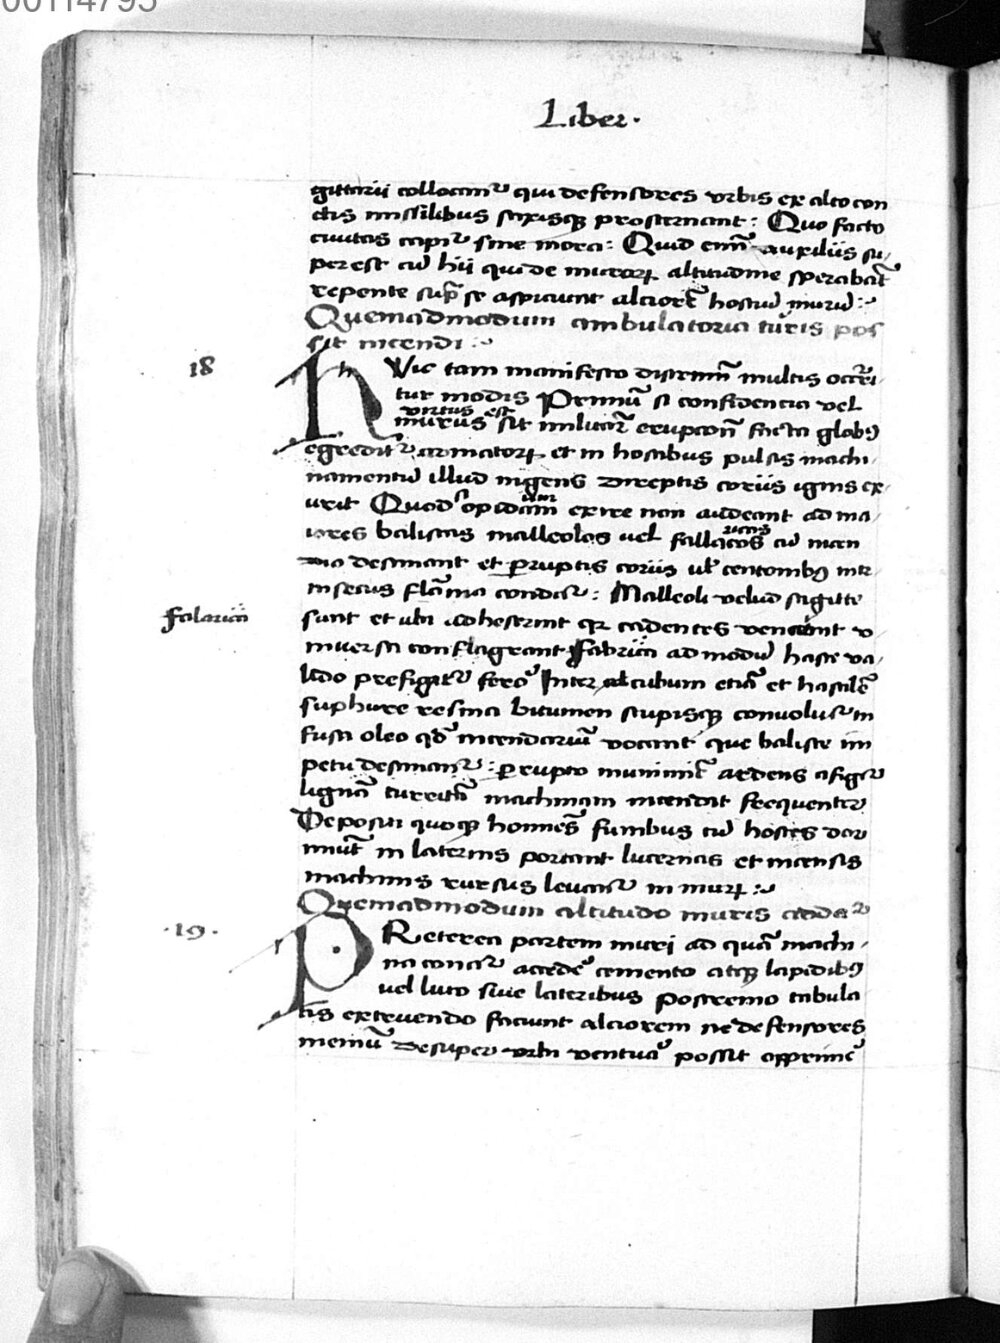 00114795
Liber.
gittarii collocantᷣ qui defensores vrbis ex alto con
ctis missilibus saxisqꝫ prosternant: Quo facto
ciuitas capitᷣ sine mora: Quid enĩ auxiliis su,
perest cũ hii qui de muroꝝ altitudine sperabãt
repente sup̃ se aspiciunt alciorẽ hostiũ murũ:~
Quemadmodum ambulatoria turis pos
sit incendi:~
18
HVic tam manifesto discrimĩ multis occũri
tur modis Primũ si confidencia vel
virtus est
murus sit militar̃ erupcõn facta globꝯ
egreditᷣ armatoꝝ et in hostibus pulsis machi,
namentũ illud ingens direptis coriis ignis ex,
urit Quod sᷤ opidam exire non audeant ad ma,
iores balistas malleolos uel fallacos cũ incen
dio destinant et ꝑruptis coriis ul̃ centonibꝯ int̃
insecus flãma conditᷣ: Malleoli velud sagitte
falarica
sunt et ubi adheserint qꝛ cadentes veniunt v
niuersa conflagrant Fabrica ad modũ haste va,
lido prefigitᷣ ferõ Inter tubum etiã et hastilẽ
suphure resina bitumen stupisqꝫ conuolutᷣ in
fusa oleo qd̃ incendariũ vocant que baliste im
petu destinantᷣ: ꝑrupto munimĩe ardens figitᷣ
lignõ turritã machinam incendit frequenter
Depositi quoqꝫ homines funibus cũ hostes dor
miũt in laternis portant lucernas et incensis
machinis rursus leuantᷣ in muꝝ:~
Quemadmodum altitudo muris addatᷣ
.19.
PReterea partem muri ad quã machi,
na conatᷣ accedẽ cemento atqꝫ lapidibꝯ
uel luto siue lateribus postremo tabula
tis extruendo faciunt alciorem ne defensores
meniũ desuper vrbi ventura possit opprimẽ